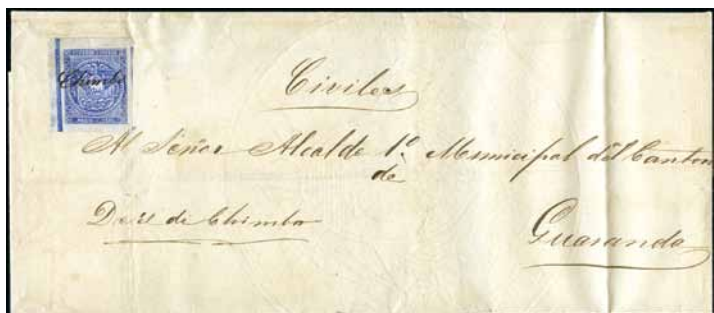 Chimbo
Civiles
Al Señor Alcalde 1º Municipal del Canton
de
de Chimbo
Guaranda